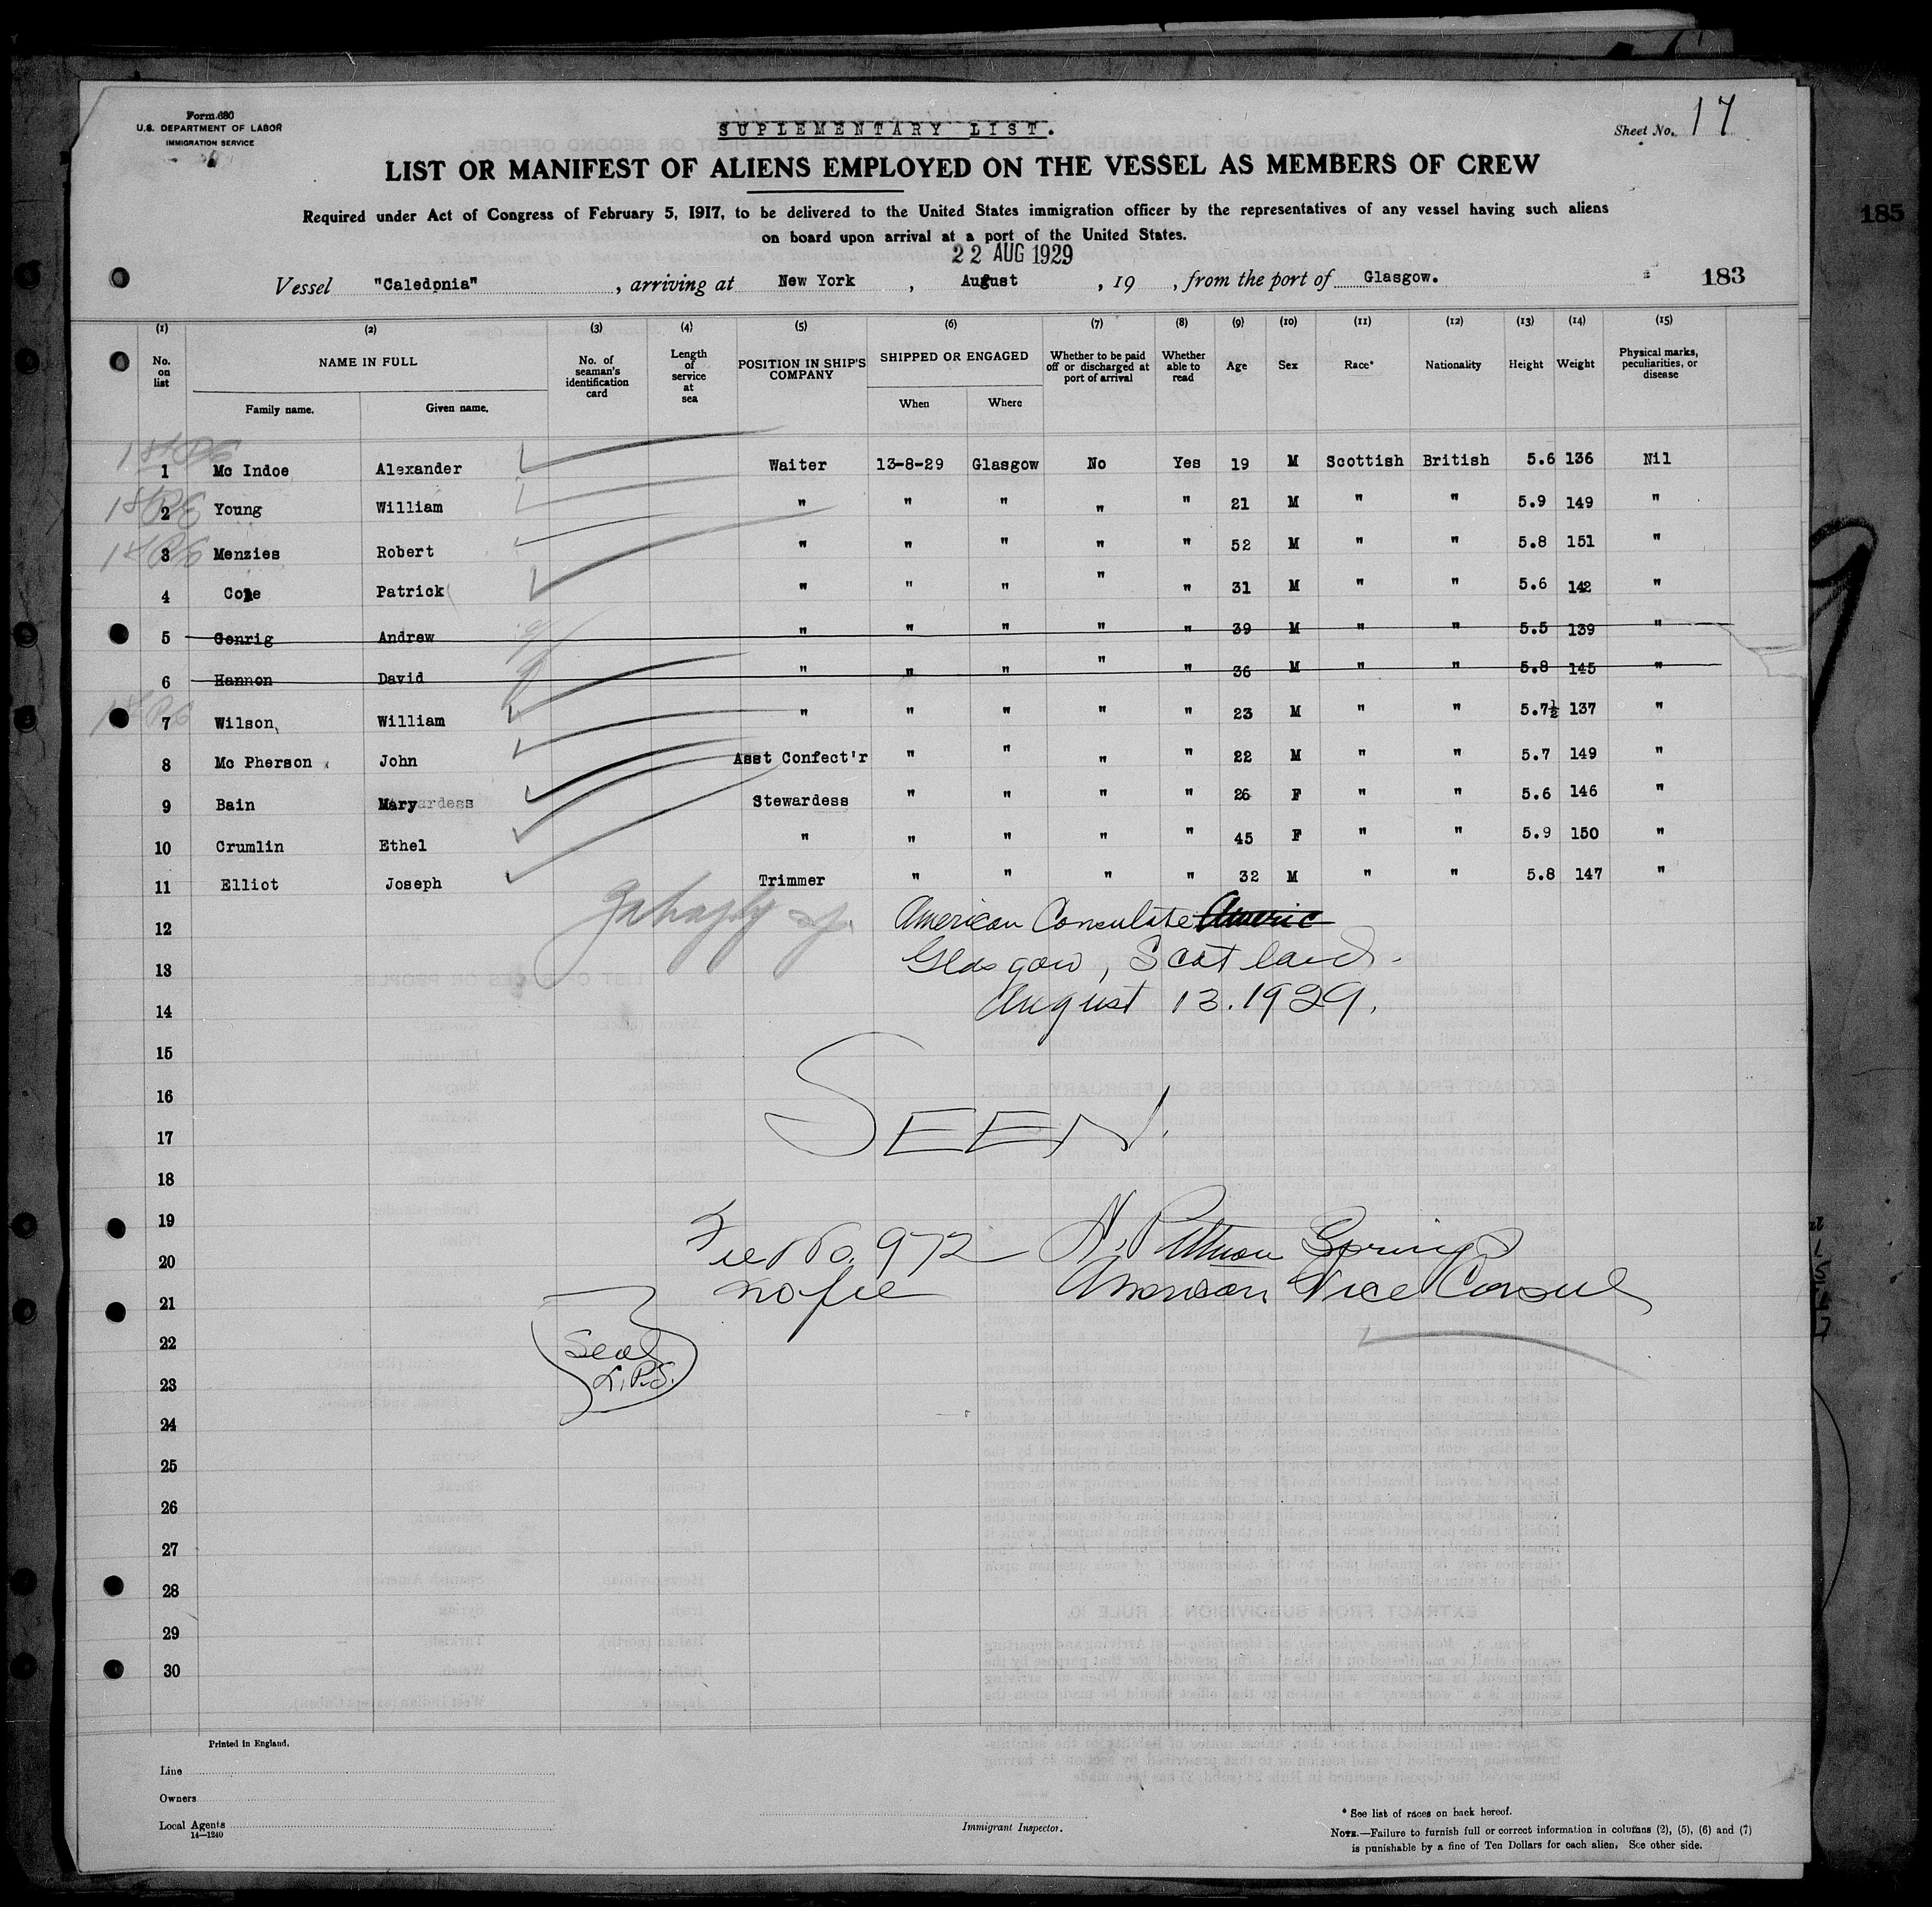 Form 680
U.S. DEPARTMENT OF LABOR
IMMIGRATION SERVICE
SUPLEMENTARY LIST.
Sheet No. 17
LIST OR MANIFEST OF ALIENS EMPLOYED ON THE VESSEL AS MEMBERS OF CREW
Required under Act of Congress of February 5, 1917, to be delivered to the United States immigration officer by the representatives of any vessel having such aliens
on board upon arrival at a port of the United States.
185
22 AUG 1929
Vessel "Caledonia", arriving at New York, August, 19 , from the port of Glasgow. 183
(1) (2) (3) (4) (5) (6) (7) (8) (9) (10) (11) (12) (13) (14) (15)
No. on list NAME IN FULL No. of seaman's identification card Length of service at sea POSITION IN SHIP'S COMPANY SHIPPED OR ENGAGED Whether to be paid off or discharged at port of arrival Whether able to read Age Sex Race* Nationality Height Weight Physical marks, peculiarities, or disease
Family name. Given name. When Where
1 Mc Indoe Alexander Waiter 13-8-29 Glasgow No Yes 19 M Scottish British 5.6 136 Nil
2 Young William " " " " " 21 M " " 5.9 149 "
3 Menzies Robert " " " " " 52 M " " 5.8 151 "
4 Patrick " " " " " 31 M " " 5.6 142 "
5 Genrig Andrew " " " " " 39 M " " 5.5 139 "
6 Hannon David " " " " " 36 M " " 5.8 145 "
7 Wilson William " " " " " 23 M " " 5.7½ 137 "
8 Mc Pherson John Asst Confect'r " " " " 22 M " " 5.7 149 "
9 Bain Mary Stewardess " " " " 26 F " " 5.6 146 "
10 Crumlin Ethel " " " " " 45 F " " 5.9 150 "
11 Elliot Joseph Trimmer " " " " 32 M " " 5.8 147 "
12 American Consulate Americ
13 Glasgow, Scotland.
14 August 13. 1929.
15
16
17 SEEN.
18
19
20 No. 972 Pittman Springs
21 no fee American Vice Consul
22 Seal
23 L.P.S.
24
25
26
27
28
29
30
Printed in England.
Line
Owners
Local Agents
14—1240
Immigrant Inspector.
* See list of races on back hereof.
NOTE.—Failure to furnish full or correct information in columns (2), (5), (6) and (7)
is punishable by a fine of Ten Dollars for each alien. See other side.